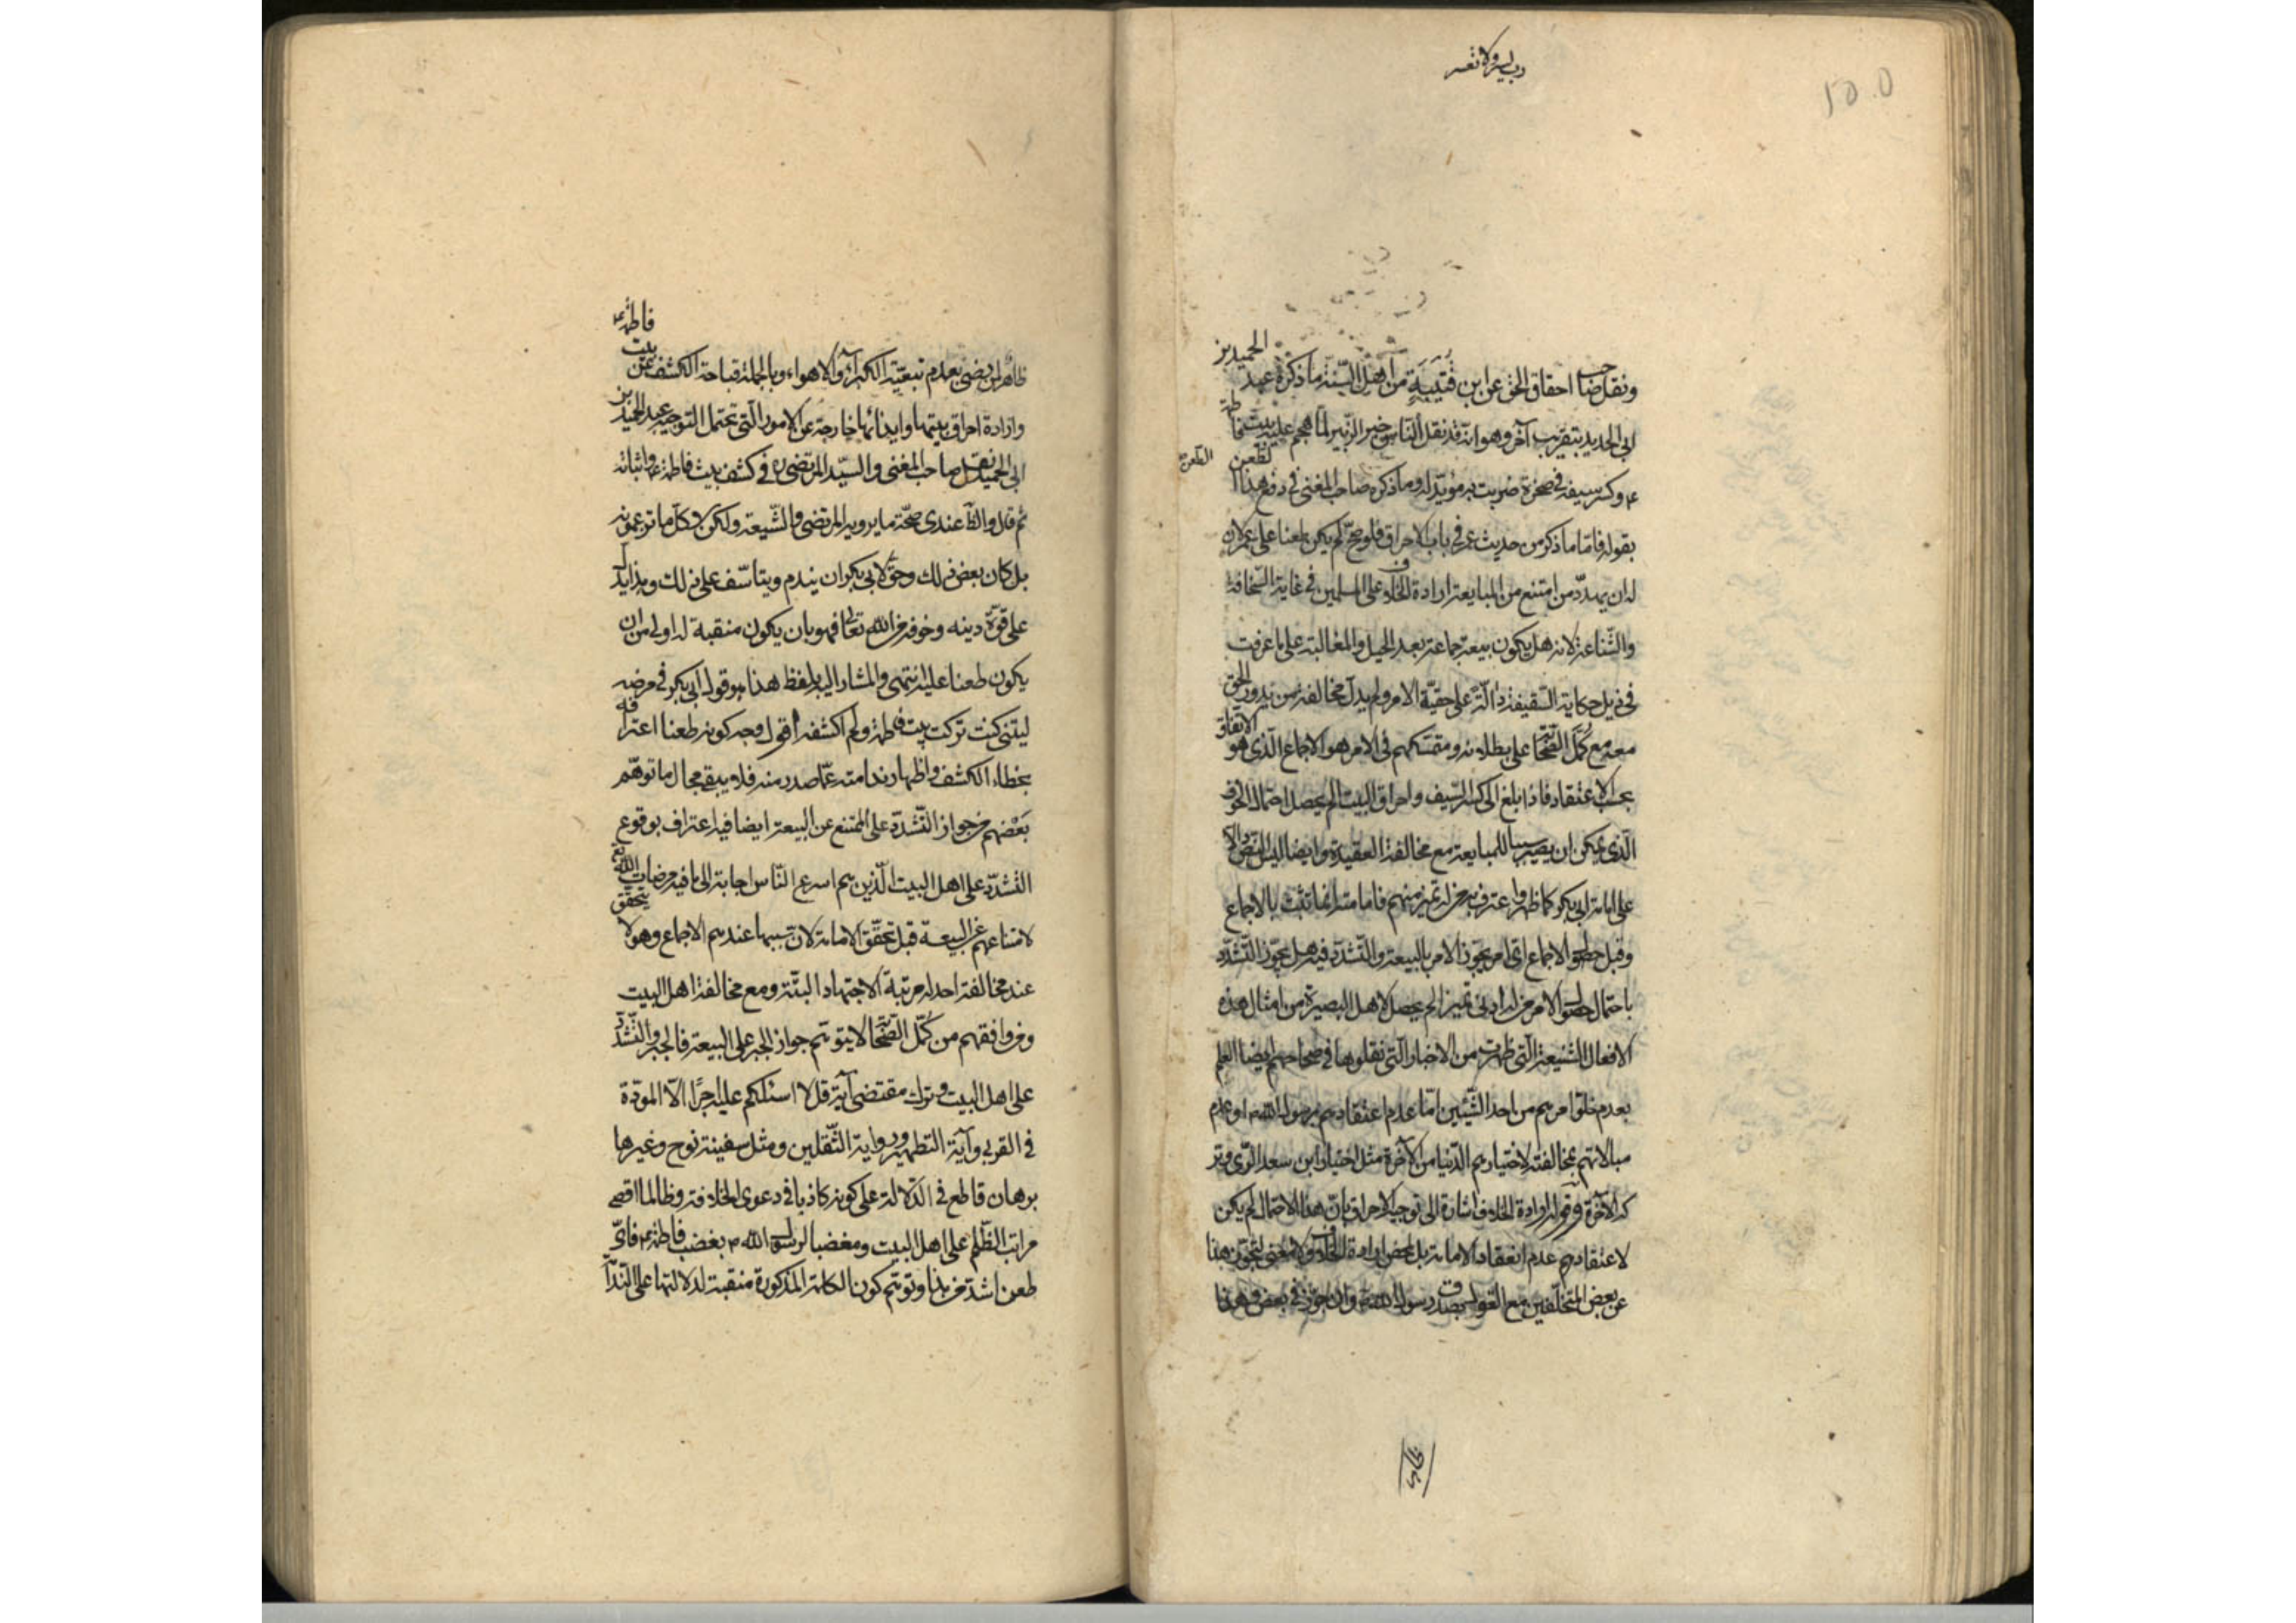 رب يسر ولا تعسر
ونقل صاحب احقاق الحق عن ابن قتيبة من اهل السنة ما ذكره عبد الحميد بن
ابى الحديد بتقريب آخر وهو انه قد نقل الناس خبر الزبير لما هجم عليه ببيت فاطمة
ع وكسر سيفه فى صخرة ضربت به مؤيد له وما ذكره صاحب المغنى فى دفع هذا الطعن
بقوله فاما ما ذكر من حديث عمر فى باب الاحراق فلو صح لم يكن طعنا على عمر لان
له ان يهدد من امتنع من المبايعة ارادة للخلاف على المسلمين فى غاية السخافة
والشناعة لانه هل يكون بيعة جماعة بعد الحيل والمغالبة على ما عرفت
فى ذيل حكاية السقيفة دالة على حقية الامر ولم يدل مخالفة من يدور الحق
معه مع كمل الصحابة على بطلانه ومتمسكهم فى الامر هو الاجماع الذى هو الاتفاق
بحسب الاعتقاد فاذا بلغ الى كسر السيف واحراق البيت لم يحصل احتمال الخوف
الذى يمكن ان يصير سببا للمبايعة مع مخالفة العقيدة وايضا ليس النص دالا
على امامة ابى بكر كما ظهر واعترف به من له تميز منهم فامامته انما تثبت بالاجماع
وقبل حصول الاجماع اى امر يجوز الامر بالبيعة والتشدد فيه هل يجوز التشدد
باحتمال حصول الامر من له ادنى تميز الم يحصل لاهل البصيرة من امثال هذه
الافعال الشنيعة التى ظهرت من الاخبار التى نقلوها فى صحاحهم ايضا العلم
بعدم خلو امرهم من احد الشيئين اما عدم اعتقادهم برسول الله ص او عدم
مبالاتهم بمخالفته لاختيارهم الدنيا من الآخرة مثل اختيار ابن سعد الرى وتر
كه الآخرة وقوله ارادة للخلاف اشارة الى توجيه الاحراق بان هذا الاحتمال لم يكن
لاعتقادهم عدم انعقاد الامامة بل لمحض ارادة الخلاف ولا معنى لتجويز هذا
عن بعض المتخلفين مع القول بصدق رسول الله ص وان جوز فى بعض وهذا
ظاهر
ظاهر لمن رضى بعدم تبعية الكبراء والاهواء وبالجملة قباحة الكشف عن بيت فاطمة ع
وارادة احراق بيتها وايذائها خارجة عن الامور التى تحتمل التوجيه عبد الحميد بن
ابى الحديد نقل صاحب المغنى والسيد المرتضى ره فى كشف بيت فاطمة ع واثباته
ثم قال والظ عندى صحة ما يرويه المرتضى والشيعة ولكن لا كل ما تزعمونه
بل كان بعض ذلك وحق لابى بكر ان يندم ويتاسف على ذلك وهذا يدل
على قوة دينه وخوفه من الله تعالى فهو بان يكون منقبة له اولى من ان
يكون طعنا عليه انتهى والمشار اليه بلفظ هذا هو قول ابى بكر فى مرضه
ليتنى كنت تركت بيت فاطمة ولم اكشفه اقول وجه كونه طعنا اعترافه
بخطاء الكشف واظهار ندامته عما صدر منه فلا يبقى مجال ما توهم
بعضهم من جواز التشدد على الممتنع عن البيعة ايضا فيه اعتراف بوقوع
التشدد على اهل البيت الذين هم اسرع الناس اجابة الى ما فيه مرضات الله تع
لامتناعهم عن البيعة قبل تحقق الامامة لان سببها عندهم الاجماع وهو لا يتحقق
عند مخالفة احد له مرتبة الاجتهاد البتة ومع مخالفة اهل البيت
ومن وافقهم من كمل الصحابة لا يتوهم جواز الجبر على البيعة فالجبر والتشدد
على اهل البيت وترك مقتضى آية قل لا اسئلكم عليه اجرا الا المودة
فى القربى وآية التطهير ورواية الثقلين ومثل سفينة نوح وغيرها
برهان قاطع فى الدلالة على كونه كاذبا فى دعوى الخلافة وظالما اقصى
مراتب الظلم على اهل البيت ومغضبا لرسول الله ص بغضب فاطمة ع فاى
طعن اشد من هذا وتوهم كون الكلمة المذكورة منقبة لدلالتها على الندا